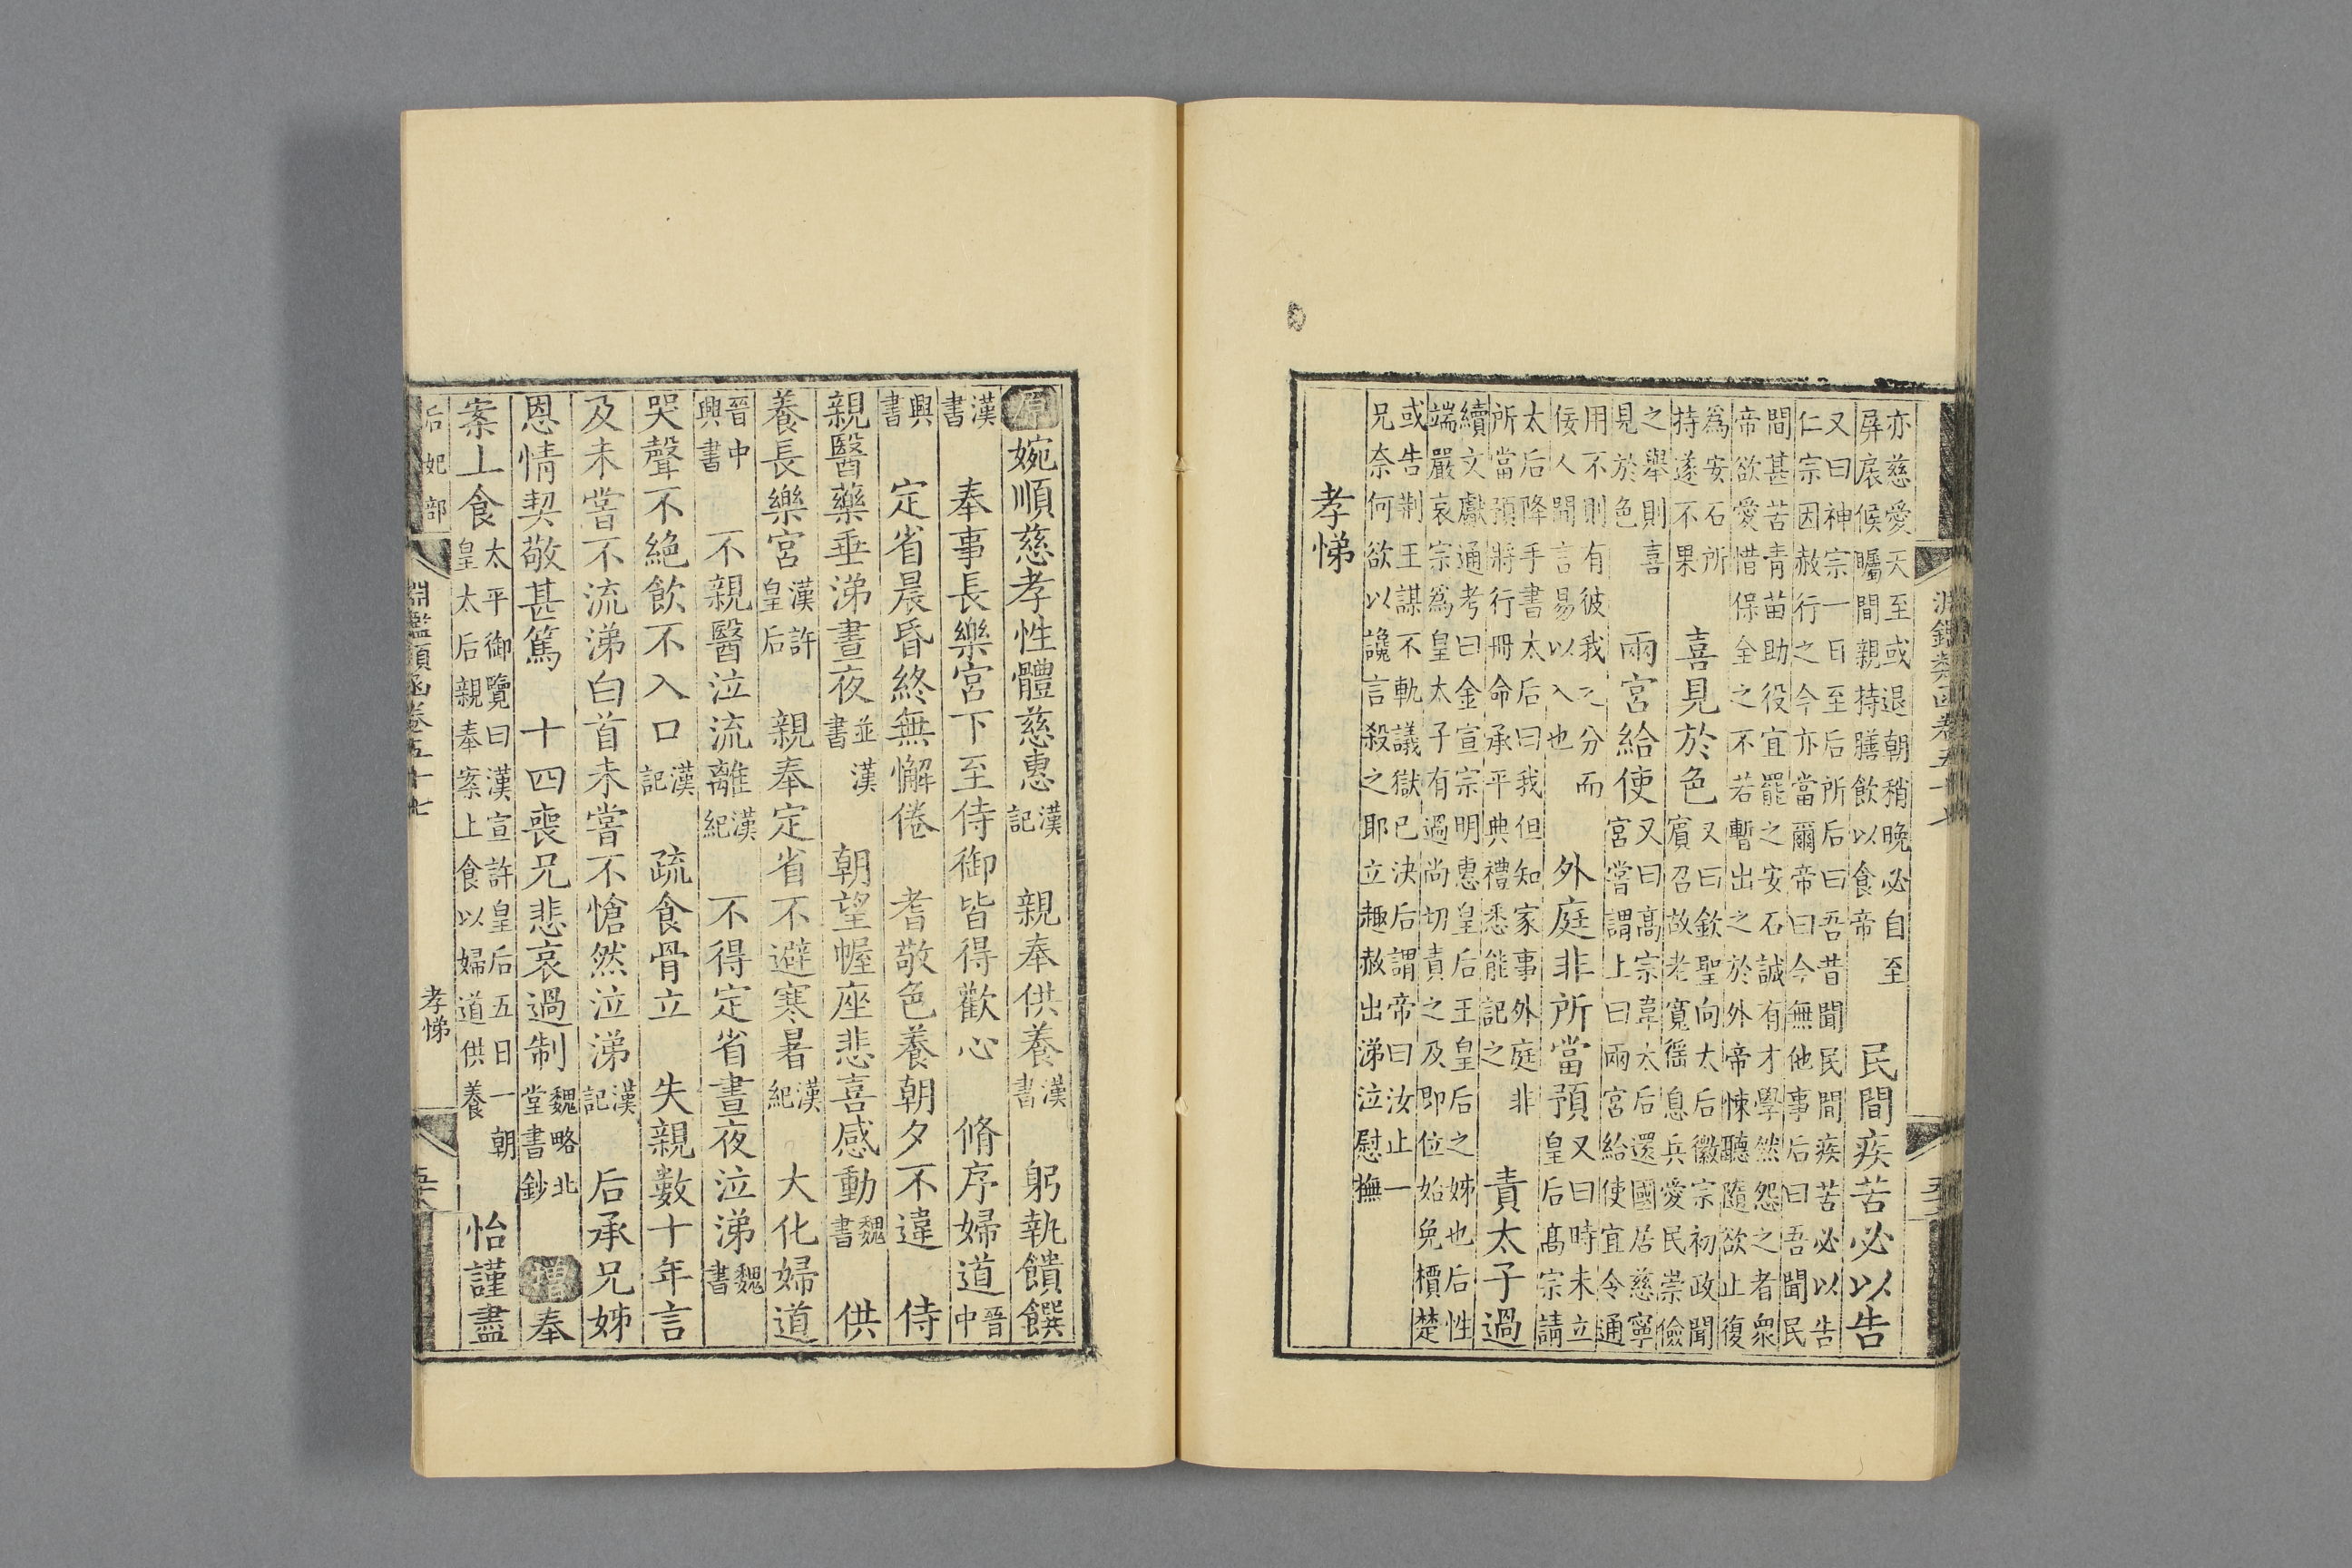 淵鑑類函卷五十七
亦慈愛天至或退朝稍晚必自至屏扆候矚間親持膳飲以食帝 民間疾苦必以告
又曰神宗一日至后所后曰吾昔聞民間疾苦必以告仁宗因赦行之今亦當爾帝曰今無他事后曰吾聞民
間甚苦青苗助役宜罷之安石誠有才學然怨之者衆帝欲愛惜保全之不若暫出之於外帝悚聽隨欲止復
爲安石所持遂不果 喜見於色 又曰欽聖向太后徽宗初政聞賓召故老寬徭息兵愛民崇儉
之舉則喜見於色 兩宮給使 又曰高宗韋太后還國居慈寧宮嘗謂上曰兩宮給使宜令通
用不則有彼我之分而佞人間言易以入也 外庭非所當預 又曰時未立皇后高宗請
太后降手書太后曰我但知家事外庭非所當預將行冊命承平典禮悉能記之 責太子過
續文獻通考曰金宣宗明惠皇后王皇后之姊也后性端嚴哀宗爲皇太子有過尚切責之及即位始免檟楚
或告荆王謀不軌議獄已決后謂帝曰汝止一兄奈何欲以讒言殺之耶立趣赦出涕泣慰撫
孝悌
原 婉順慈孝性體慈惠 漢記 親奉供養 漢書 躬執饋饌
漢書 奉事長樂宮下至侍御皆得歡心 脩序婦道 晉中
興書 定省晨昏終無懈倦 耆敬色養朝夕不違 侍
親醫藥垂涕晝夜 並漢書 朝望幄座悲喜感動 魏書 供
養長樂宮 漢許皇后 親奉定省不避寒暑 漢紀 大化婦道
晉中興書 不親醫泣流離 漢紀 不得定省晝夜泣涕 魏書
哭聲不絕飲不入口 漢記 疏食骨立 失親數十年言
及未嘗不流涕白首未嘗不愴然泣涕 漢記 后承兄姊
恩情契敬甚篤 十四喪兄悲哀過制 魏略北堂書鈔 增 奉
案上食 太平御覽曰漢宣許皇后五日一朝皇太后親奉案上食以婦道供養 怡謹盡
后妃部 淵鑑類函卷五十七 孝悌